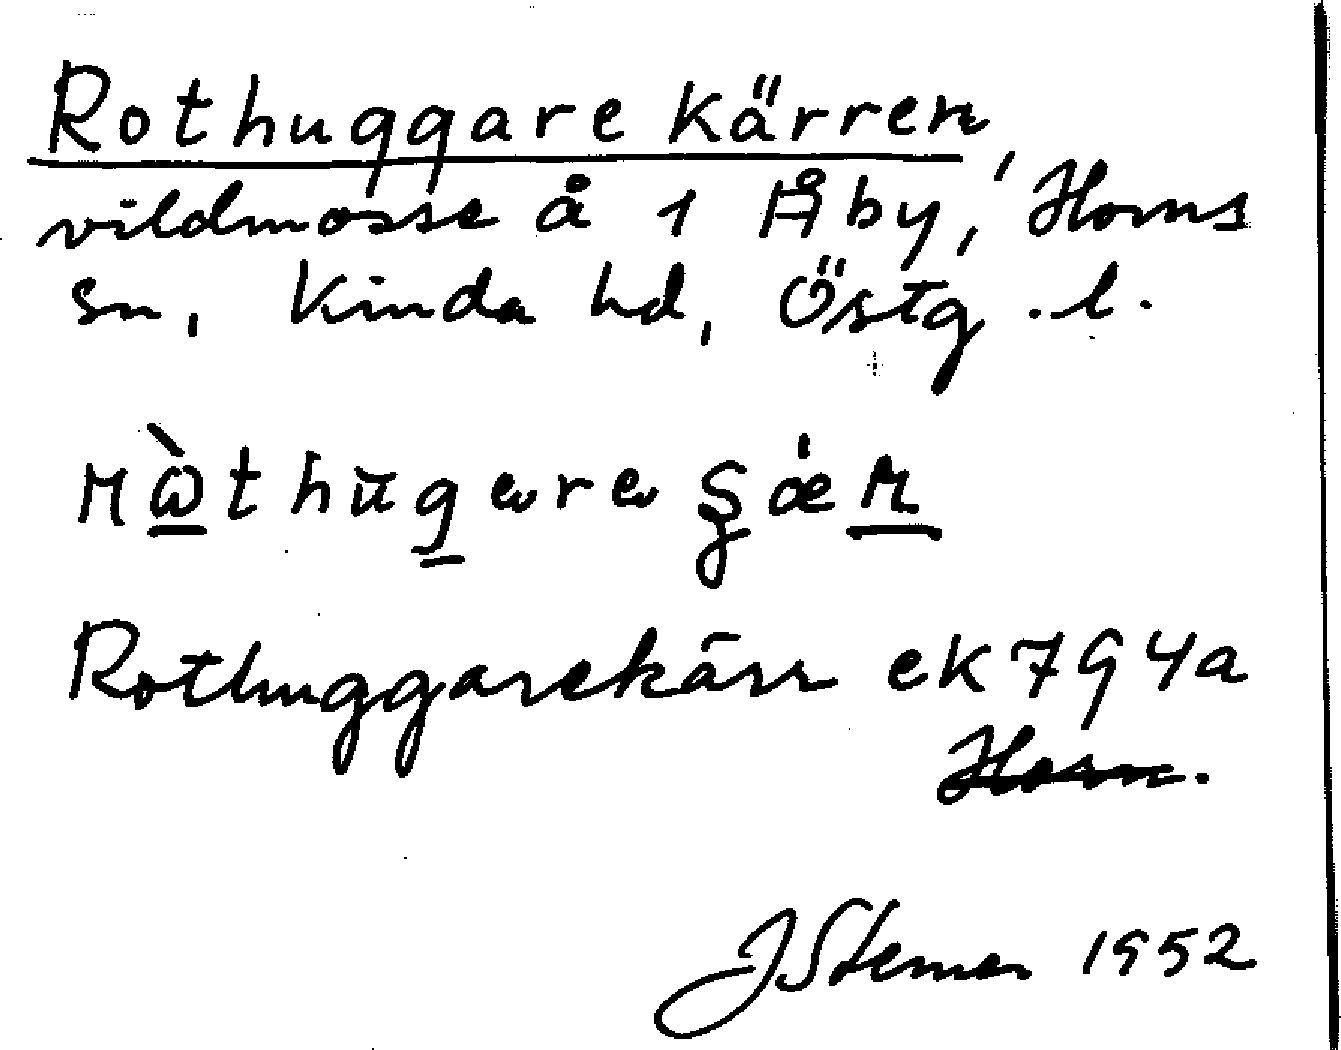 Rothuggare kärren
vildmosse å 1 Åby, Horns
sn, Kinda hd, Östg.l.
Rothuggarekärr ek 794a
Horn.
1952